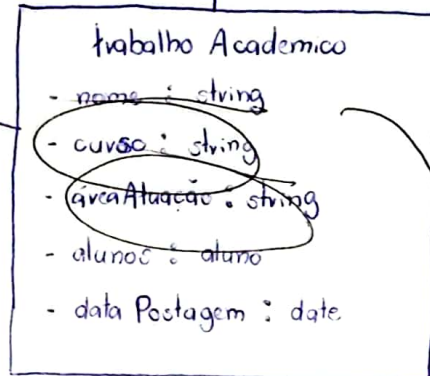 trabalho Academico
- nome : string
- curso : string
- áreaAtuação : string
- alunos : aluno
- data Postagem : date